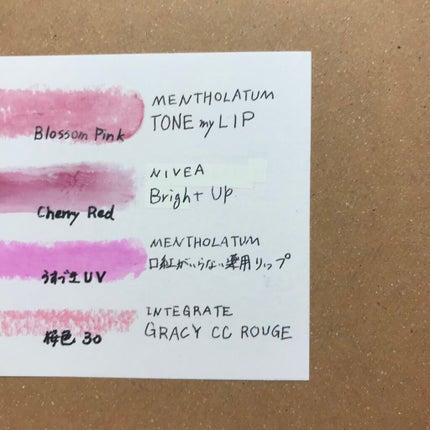 MENTHOLATUM
TONE my LIP
Blossom Pink
NIVEA
Bright Up
Cherry Red
MENTHOLATUM
口紅がいらない薬用リップ
うすづきUV
INTEGRATE
GRACY CC ROUGE
桜色 30